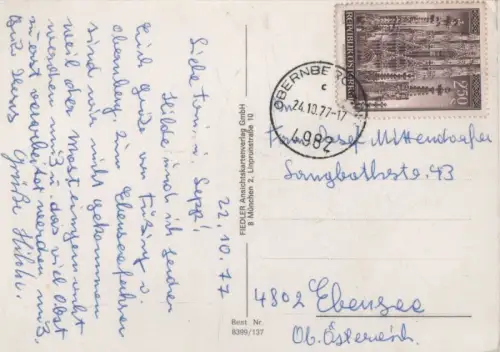 22.10.77
Liebe Toni u. Sepp!
Hilde und ich senden
Euch Grüße von
Obernberg. Zum Ebenseefahren
sind wir nicht gekommen
weil der Most eingewintert
werden muß u. das viel Obst
verarbeitet werden muß.
Grüße
FIEDLER Ansichtskartenverlag GmbH
8 München 2, Linprunstraße 10
Best Nr.
8399/137
REPUBLIK ÖSTERREICH
OBERNBERG
c
24.10.77-17
4982
Josef Mittendorfer
Langbathstr. 43
4802 Ebensee
Ob. Österreich